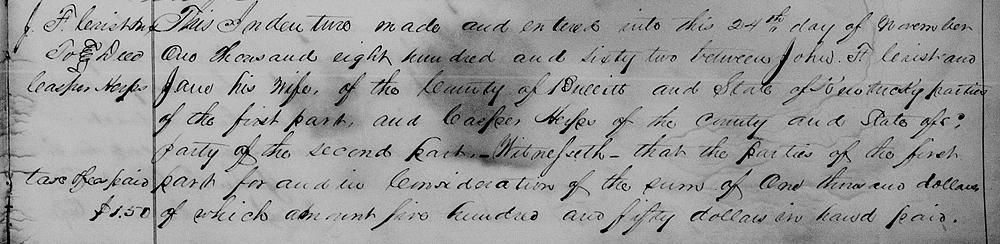 J. F. Crist &c This Indenture made and entered into this 24th day of November
To } Deed One thousand eight hundred and sixty two between John. F. Crist and
Casper Herps Jane his Wife, of the County of Bullitt and State of Kentucky parties
of the first part, and Casper Herps of the County and State ofsc.
party of the second part. _ Witnesseth _ that the parties of the first
tax &c paid part for and in Consideration of the sum of One thousand dollars
$1.50 of which amount five hundred and fifty dollars in hand paid.